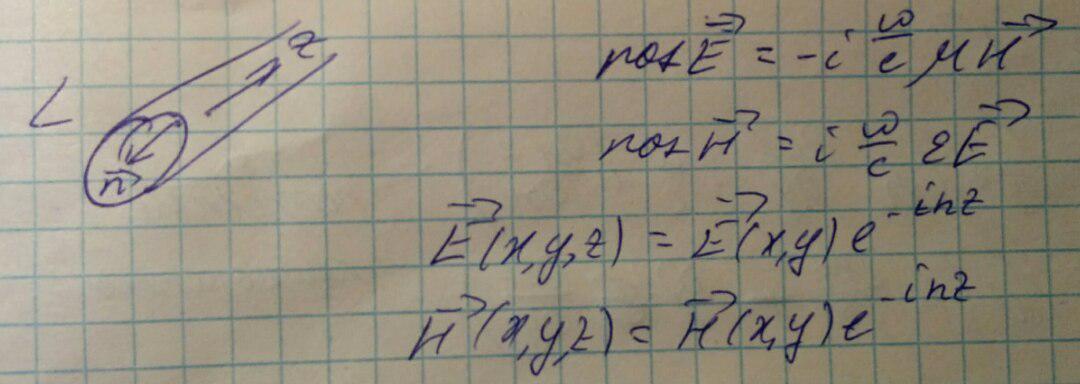 L
z
n⃗
rot E⃗ = -i ω/c μH⃗
rot H⃗ = i ω/c εE⃗
E⃗(x,y,z) = E⃗(x,y)e^{-inz}
H⃗(x,y,z) = H⃗(x,y)e^{-inz}